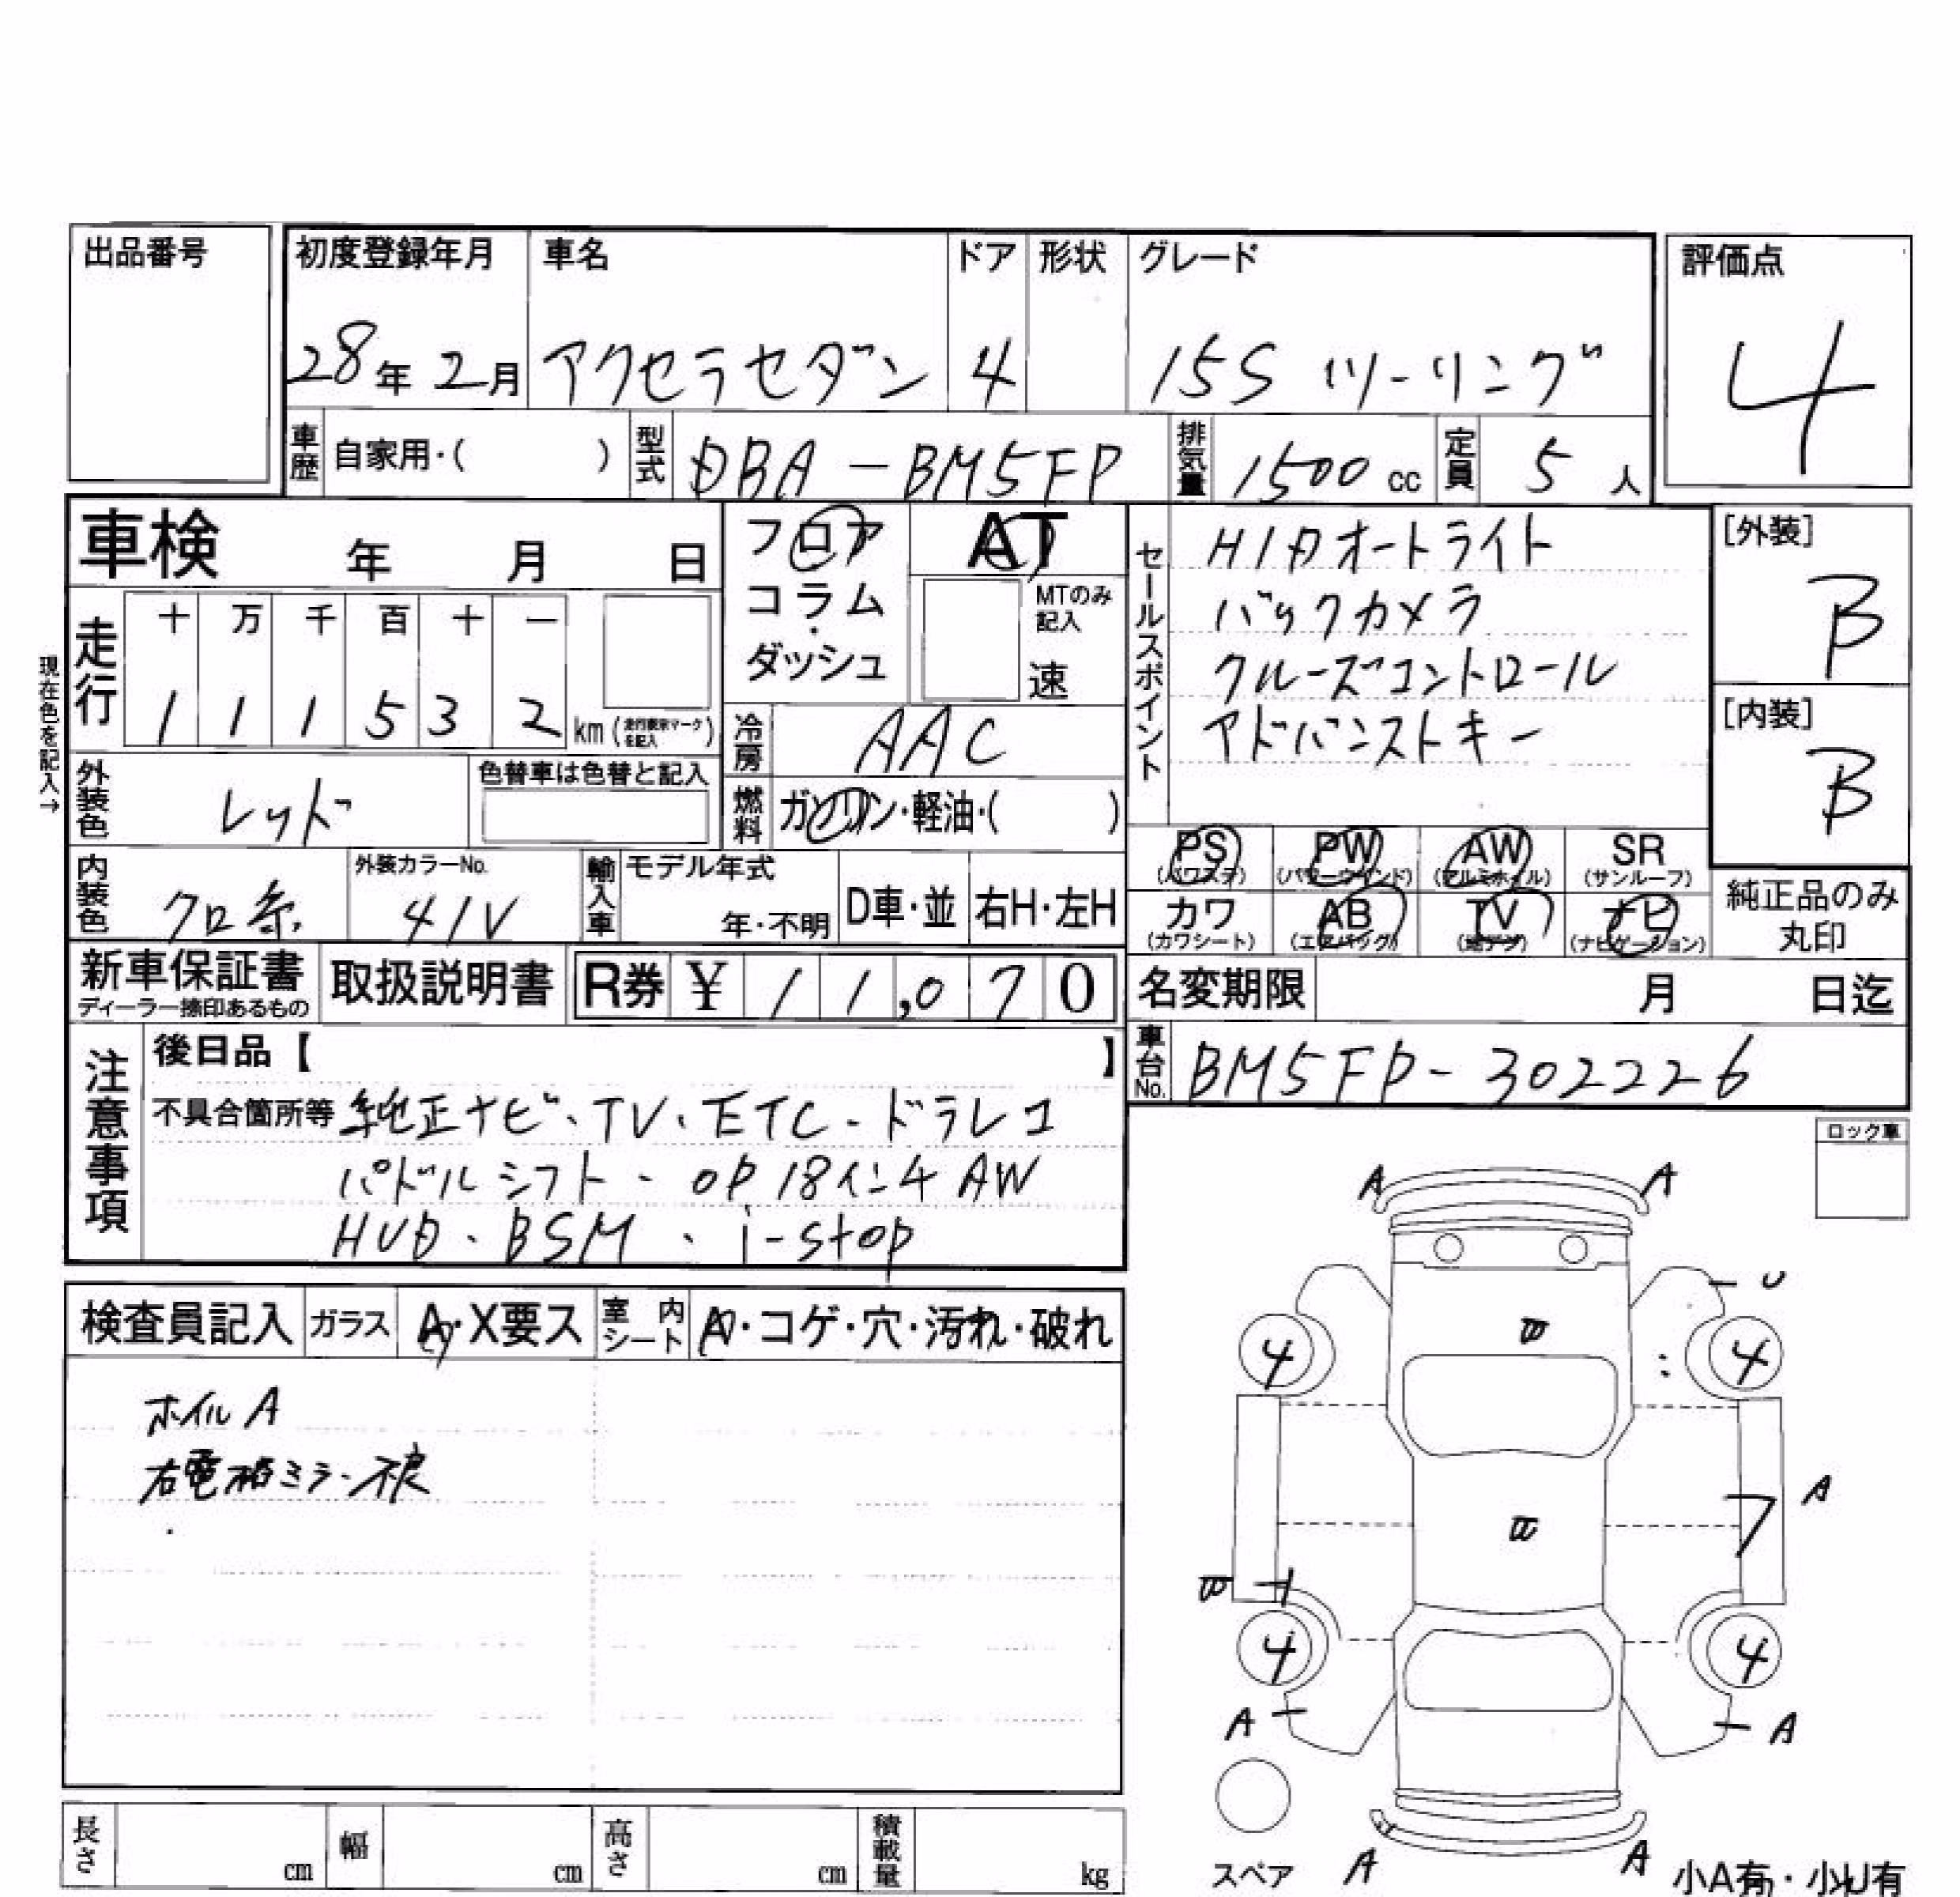 出品番号
初度登録年月 車名 ドア 形状 グレード 評価点
28年 2月 アクセラセダン 4 15S ツーリング 4
車歴 自家用・( ) 型式 DBA-BM5FP 排気量 1500 cc 定員 5 人
車検 年 月 日
フロア コラム・ダッシュ
AT
MTのみ記入
速
セールスポイント
HIDオートライト
バックカメラ
クルーズコントロール
アドバンストキー
[外装] B
[内装] B
現在色を記入→
走行 十 万 千 百 十 一
1 1 1 5 3 2 km (走行表示マークを記入)
冷房 AAC
外装色 レッド 色替車は色替と記入
燃料 ガソリン・軽油・( )
内装色 クロ系 外装カラーNo. 41V
輸入車 モデル年式 年・不明 D車・並 右H・左H
PS (パワステ) PW (パワーウインド) AW (アルミホイル) SR (サンルーフ)
カワ (カワシート) AB (エアバッグ) TV (地デジ) ナビ (ナビゲーション)
純正品のみ丸印
新車保証書 ディーラー捺印あるもの 取扱説明書 R券 ¥ 11,070
名変期限 月 日迄
車台No. BM5FP-302226
注意事項
後日品【 】
不具合箇所等 純正ナビ・TV・ETC・ドラレコ
パドルシフト・OP 18インチ AW
HUD・BSM・i-stop
ロック車
検査員記入 ガラス A・X要ス 室内シート A・コゲ・穴・汚れ・破れ
ホイルA
右電格ミラー不良
A A
U
4 4
A
4 4
A A
スペア A A 小A有・小U有
長さ cm 幅 cm 高さ cm 積載量 kg